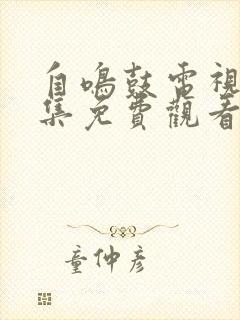 自鳴鼓電視
集免費觀看
童仲彦